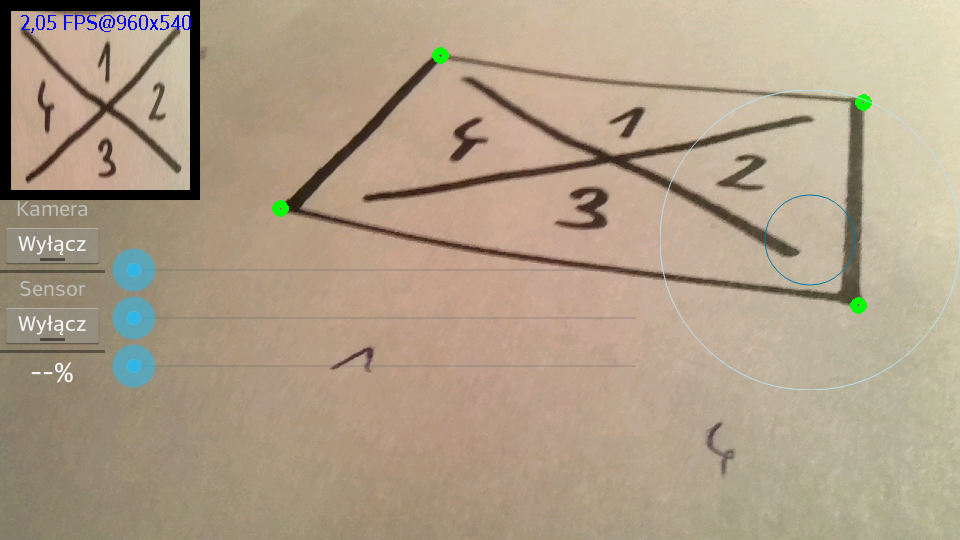 2,05 FPS@960x540
1
4 2
3
Kamera
Wyłącz
Sensor
Wyłącz
--%
1
4 2
3
1
4